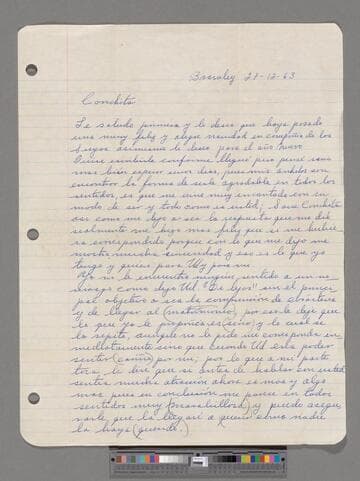 Brawley 27-12-63
Conchita
Le saludo primero y le deseo que haya pasado
una muy feliz y alegre navidad en compañía de los
Suyos asimismo le deseo para el año nuevo
Quise escribirle conforme llegué pero pensé
mas bien esperar unos días, pues mi anhelo son
encontrar la forma de serle agradable en todos los
sentidos, es que me vine muy encantado con su
modo de ser y todo como es usted, Sabe Conchita
así como me dijo o sea la respuesta que me dió
realmente me hizo mas feliz que si me hubie-
ra correspondido porque con lo que me dijo me
mostró mucha sinceridad y eso es lo que yo
tengo y quiero para Ud y para mi
Yo no le encuentro ningún sentido a un no-
viazgo como dijo Ud. "De lejos" sin el princi-
pal objetivo o sea la comprensión de
y de llegar al (matrimonio) por eso le dije que
es que yo le propongo es serio y lo cual se
lo repito, aunque no le pido me corresponda in-
mediatamente sino que cuando Ud crea poder
sentir (cariño) por mi, por lo que a mi parte
toca, le diré que si antes de hablar con usted
sentía mucha atracción ahora es mas y algo
mas pues en conclusión me parece en todos
sentidos muy (maravillosa) y puedo asegu-
rarle que la llegaré a querer como nadie
la haya (querido.)